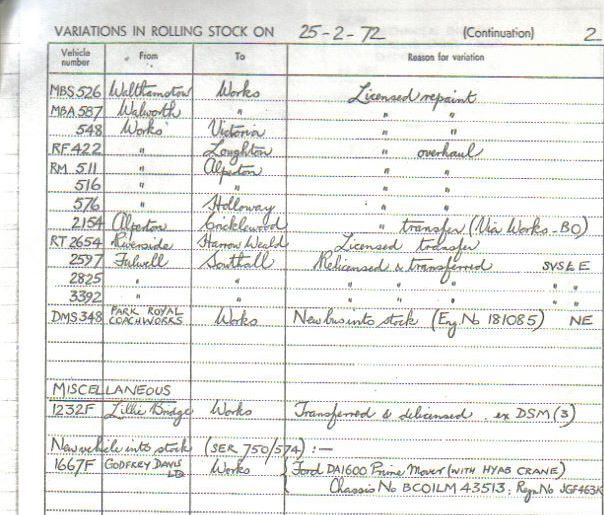 VARIATIONS IN ROLLING STOCK ON 25-2-72 (Continuation) 2
Vehicle number From To Reason for variation
MBS 526 Walthamstow Works Licensed repaint
MBA 587 Walworth " " "
548 Works Victoria " "
RF 422 " Loughton " overhaul
RM 511 " Alperton " "
516 " " " "
576 " Holloway " "
2154 Alperton Cricklewood " transfer (Via Works-BO)
RT 2654 Riverside Harrow Weald Licensed transfer
2597 Fulwell Southall Relicensed & transferred SVSLE
2825 " " " " " " "
3392 " " " " " " "
DMS 348 PARK ROYAL COACHWORKS Works New bus into stock (Eng. No 181085) NE
MISCELLANEOUS
1232F Lillie Bridge Works Transferred & delicensed ex DSM (3)
New vehicle into stock (SER 750/574) :-
1667F GODFREY DAVIS LD Works Ford DA1600 Prime Mover (WITH HYAB CRANE)
Chassis No BCOILM 43513; Regn No JGF463K